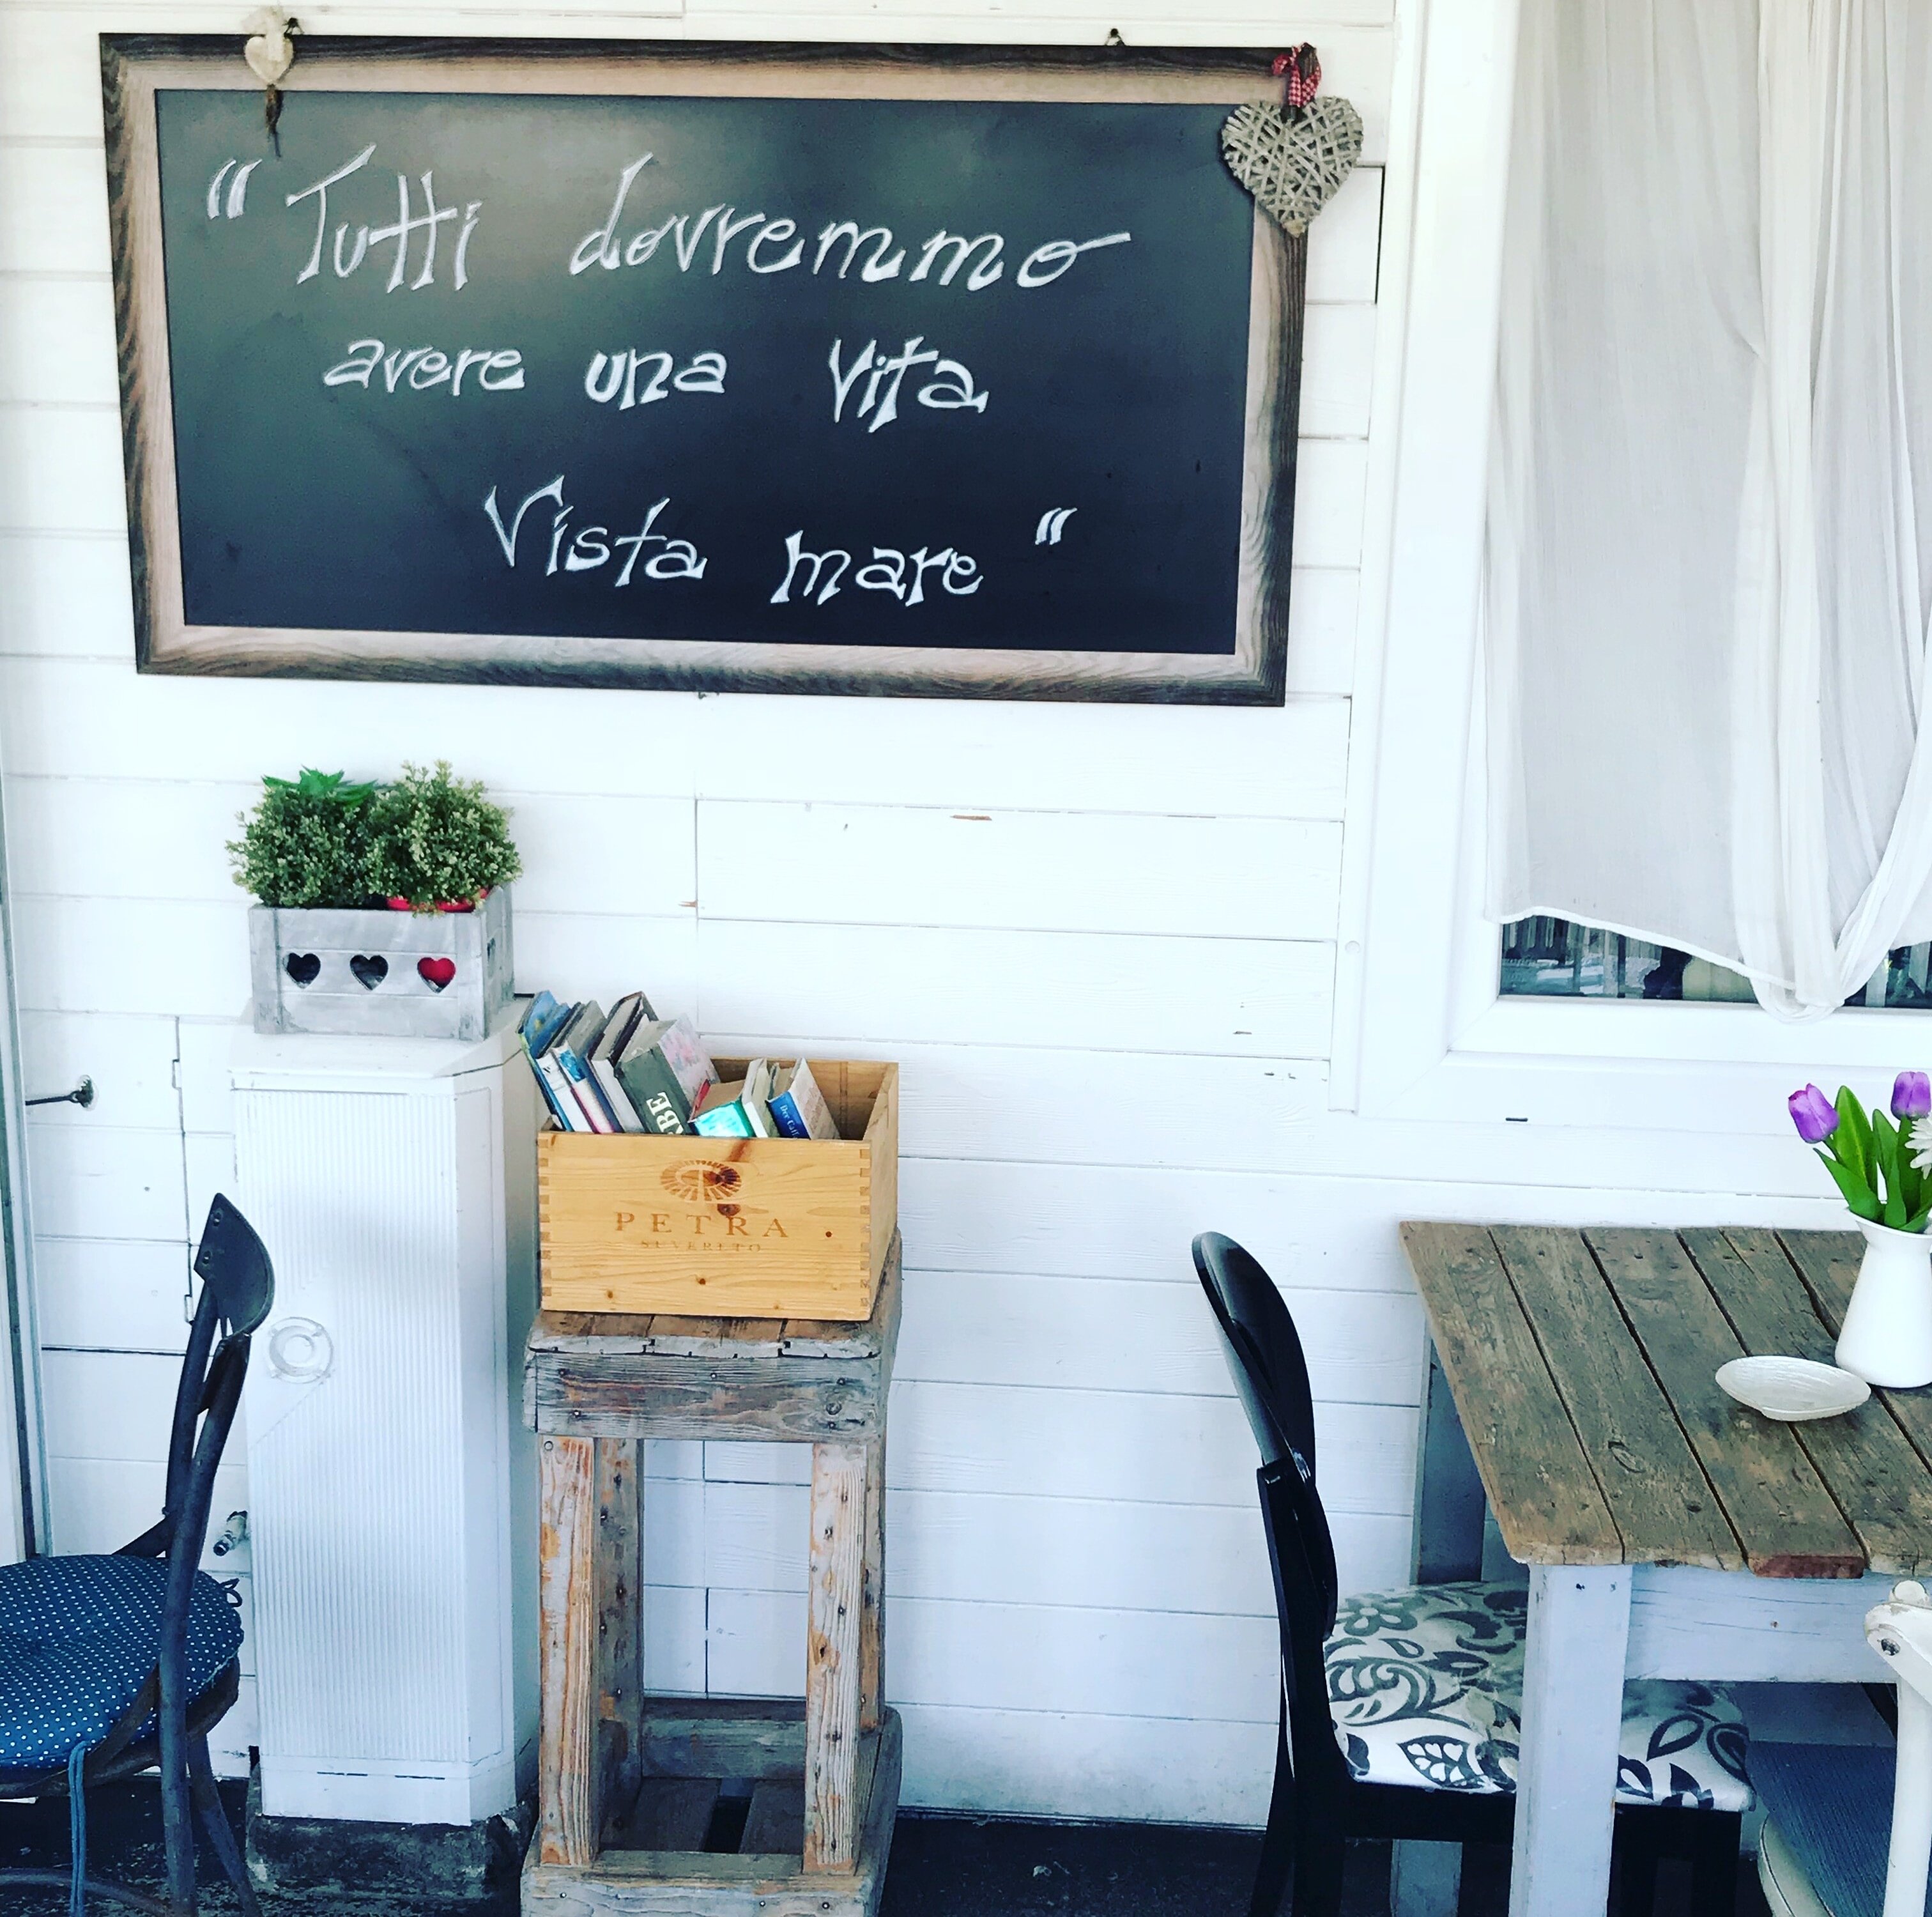 "Tutti dovremmo
avere una vita
Vista mare"
RBE
Der
PETRA
SUVERETO